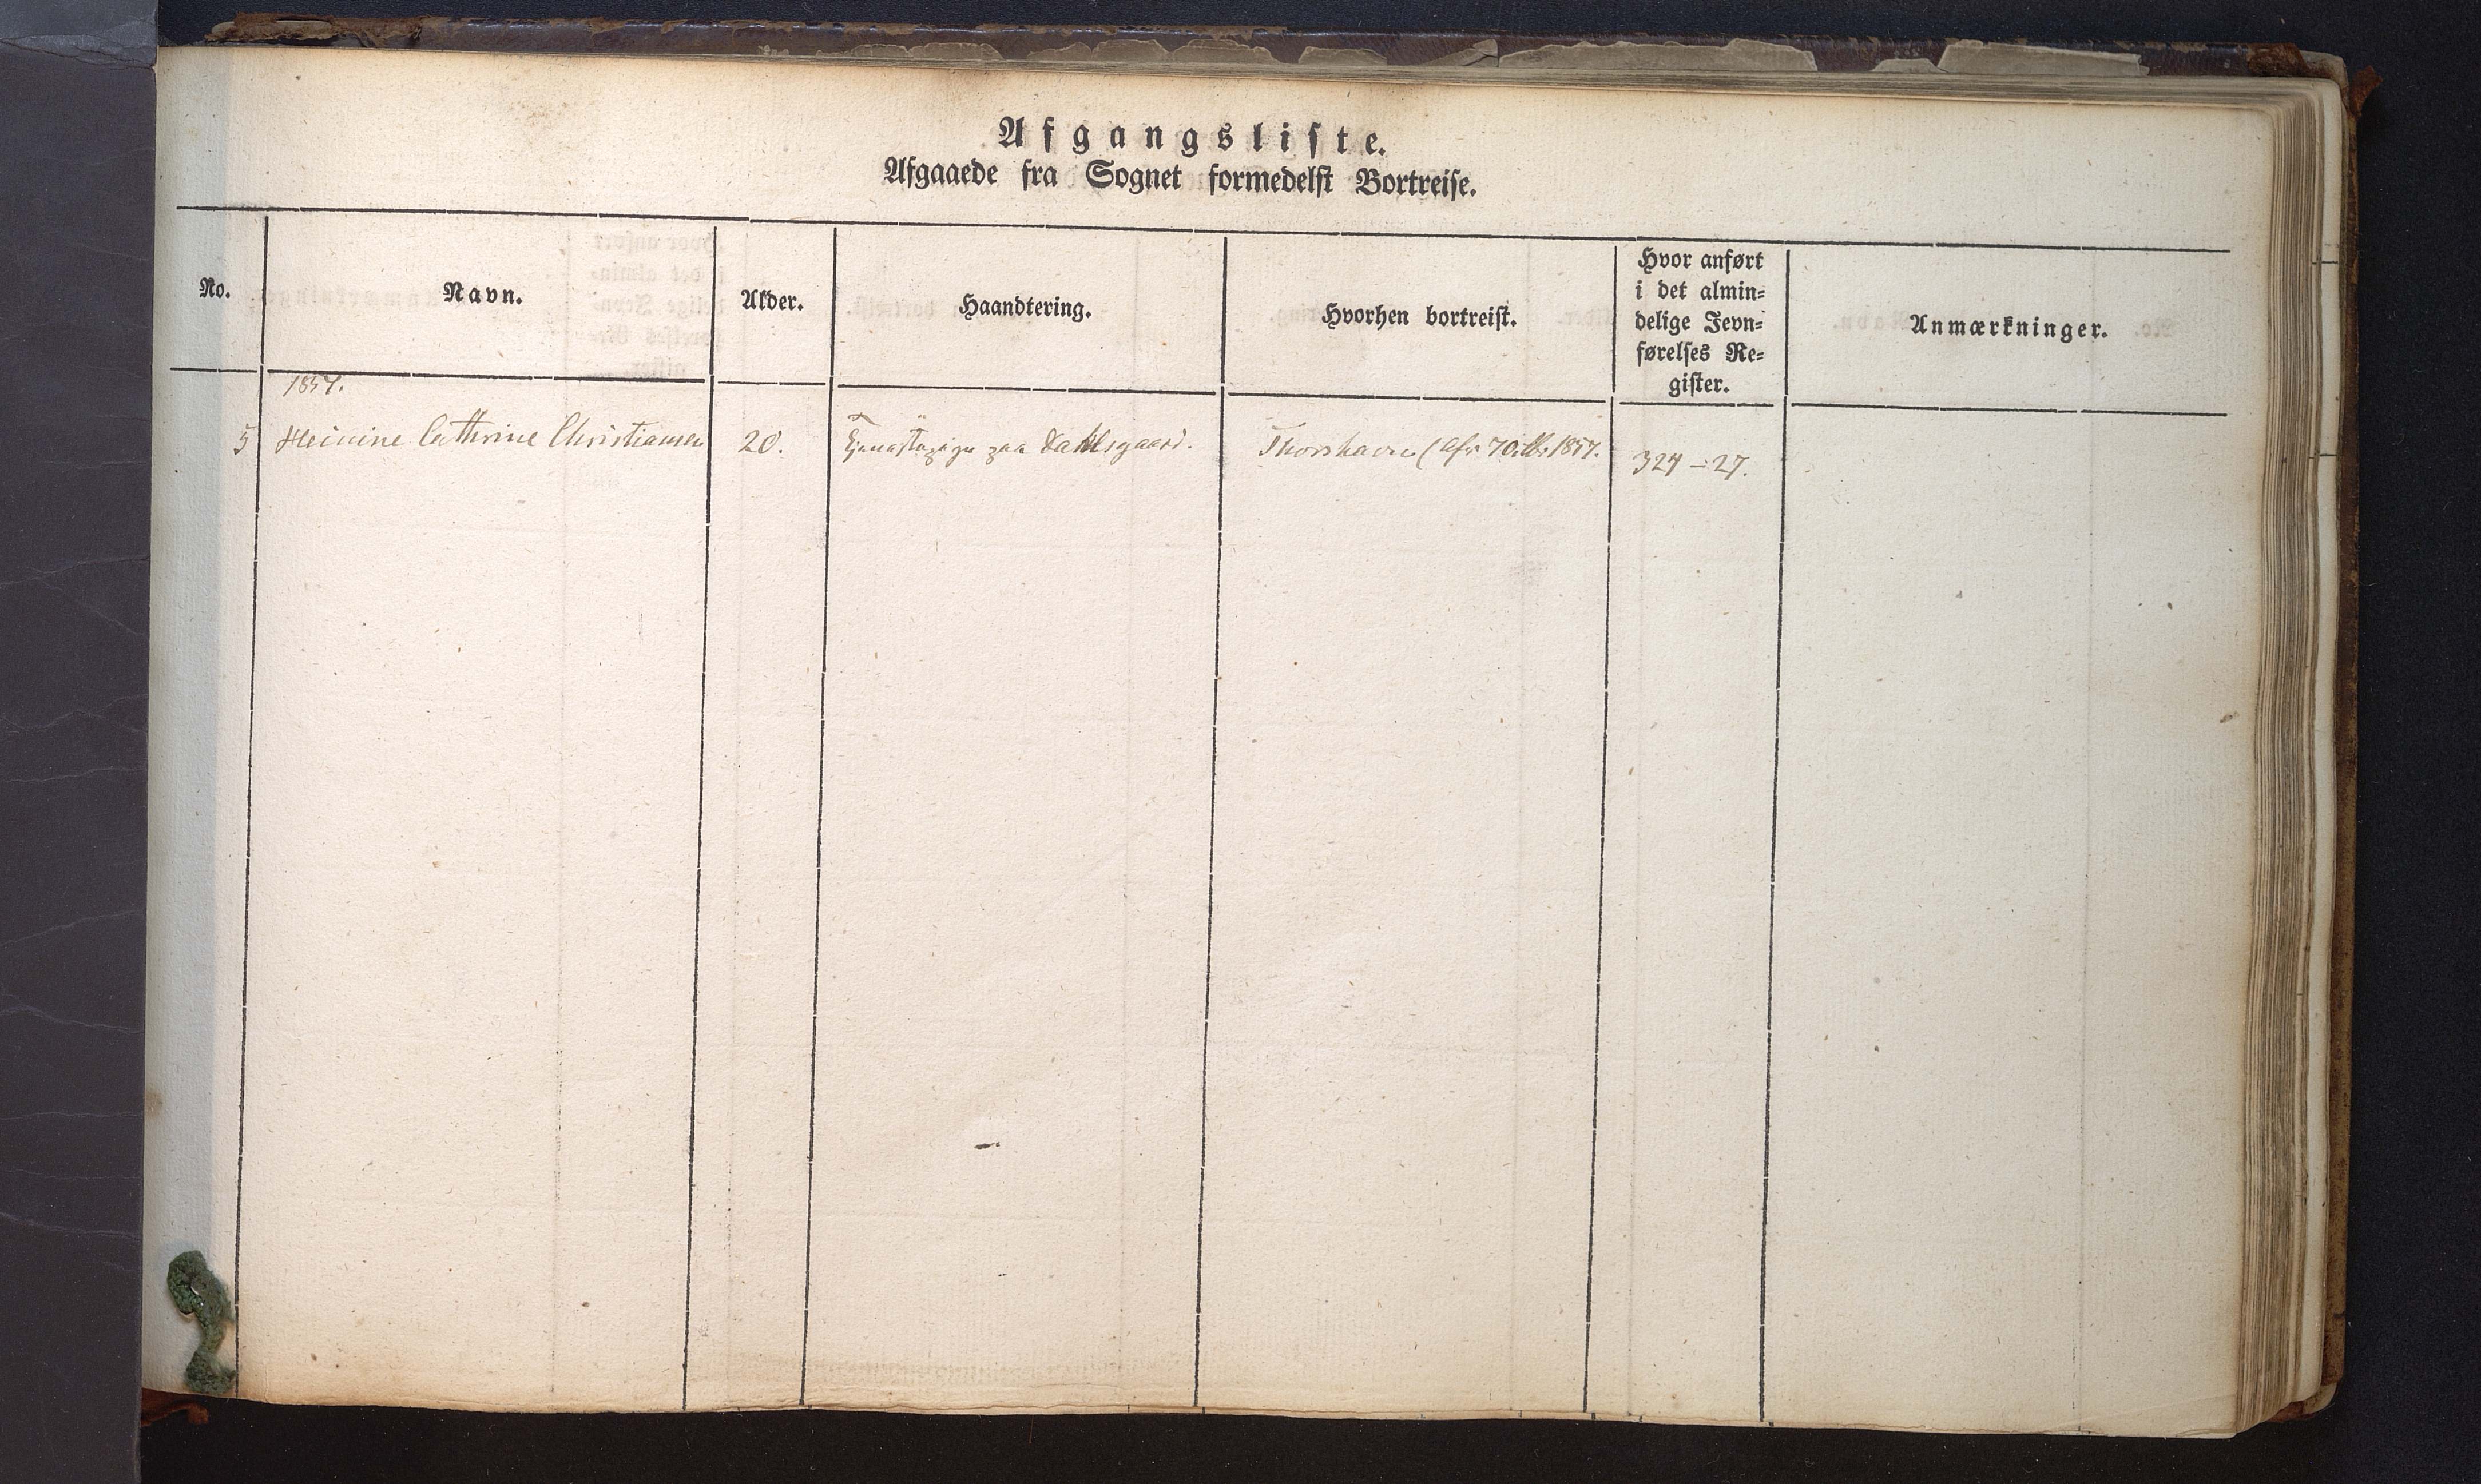 Afgangsliste.
Afgaaede fra Sognet formedelst Bortreise.
No.
Navn.
Alder.
Haandtering.
Hvorhen bortreist.
Hvor anført
i det almin=
delige Jevn=
førelses Re=
gister.
Anmærkninger.
1857.
5 Heinine Cathrine Christiansen 20. Tjenestepige paa Dahlsgaard. Thorshavn (Afr 1857. 324 - 27.